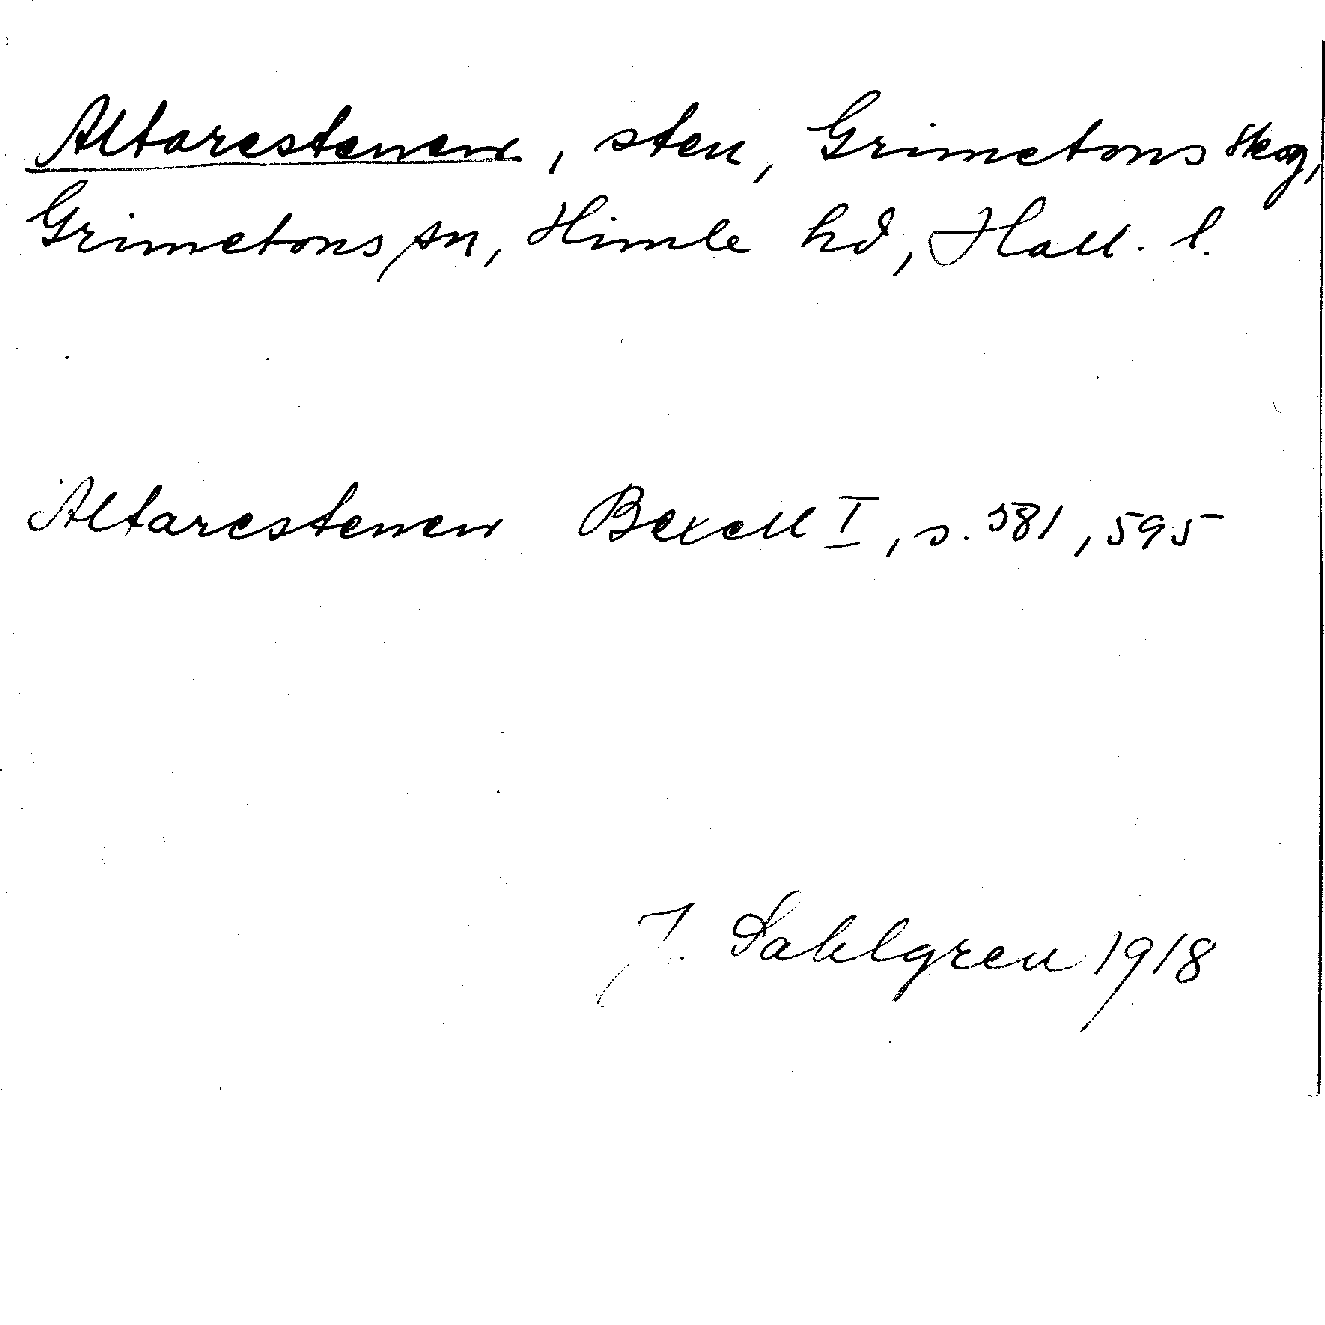 Altarestenen, sten, Grimetons skog,
Grimetons sn, Himle hd, Hall. l.
Altarestenen Bexell I, s. 581, 595
J. Sahlgren 1918